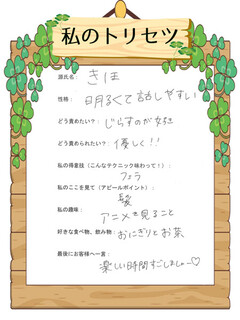 私のトリセツ
源氏名： きほ
性格： 明るくて話しやすい
どう責めたい？： じらすのが好き
どう責められたい？： 優しく！！
私の得意技（こんなテクニック味わって！）：
フェラ
私のここを見て（アピールポイント）：
髪
私の趣味：
アニメを見ること
好きな食べ物、飲み物： おにぎりとお茶
最後にお客様へ一言：
楽しい時間すごしましょ〜♡